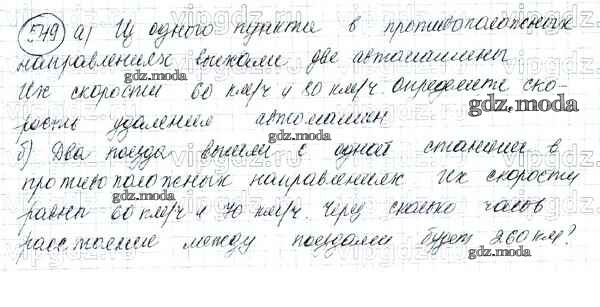 549 а) Из одного пункта в противоположных
направлениях выехали две автомашины
Их скорости 60 км/ч и 80 км/ч. Определите ско-
рость удаления автомашин
б) Два поезда вышли с одной станции в
противоположных направлениях Их скорости
равны 60 км/ч и 70 км/ч. Через сколько часов
расстояние между поездами будет 260 км?
gdz.moda
gdz.moda
gdz.moda
gdz.moda
gdz.moda
gdz.moda